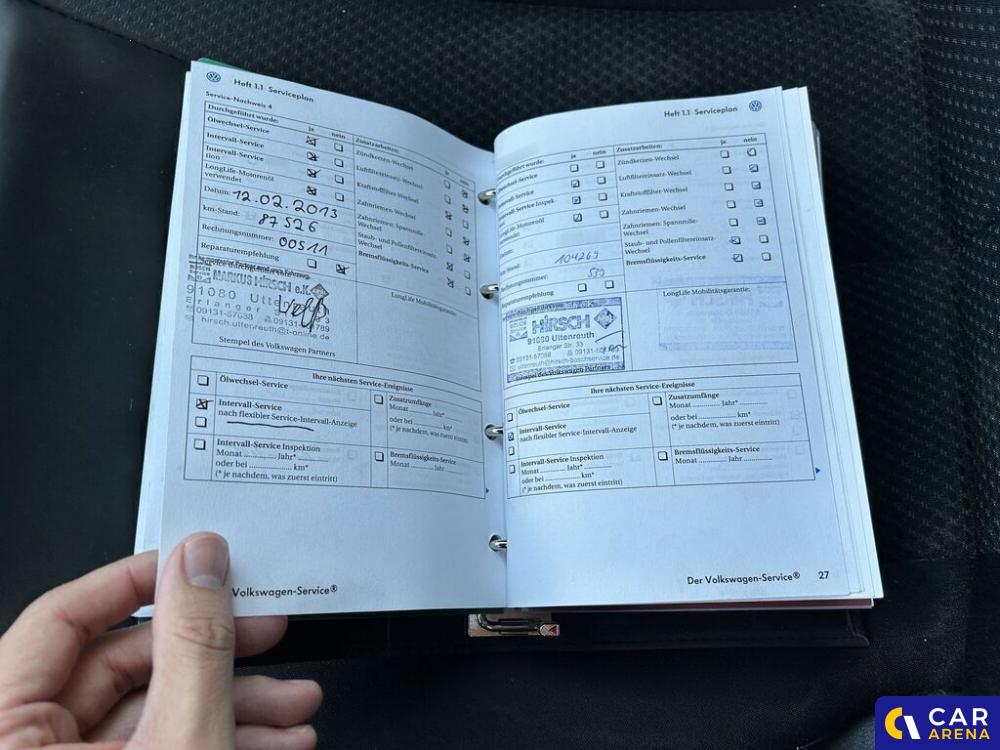 Heft 1.1 Serviceplan
Service-Nachweis 4
Durchgeführt wurde: ja nein
Ölwechsel-Service
Intervall-Service
Intervall-Service
tion
LongLife-Motorenöl
verwendet
Datum: 12.02.2013
km-Stand: 87526
Rechnungsnummer: 00511
Reparaturempfehlung
Zusatzarbeiten:
Zündkerzen-Wechsel
Luftfiltereinsatz-Wechsel
Kraftstofffilter-Wechsel
Zahnriemen-Wechsel
Zahnriemen: Spannrolle-
Wechsel
Staub- und Pollenfiltereinsatz-
Wechsel
Bremsflüssigkeits-Service
MARKUS HIRSCH e.K.
91080 Uttenreuth
Erlanger
09131-57088
hirsch.uttenreuth@t-online.de
Stempel des Volkswagen Partners
LongLife Mobilitätsgarantie:
Ihre nächsten Service-Ereignisse
Ölwechsel-Service
Intervall-Service
nach flexibler Service-Intervall-Anzeige
Intervall-Service Inspektion
Monat Jahr*
oder bei km*
(* je nachdem, was zuerst eintritt)
Zusatzumfänge
Monat Jahr*
oder bei km*
(* je nachdem, was zuerst eintritt)
Bremsflüssigkeits-Service
Monat Jahr
Volkswagen-Service®
Heft 1.1 Serviceplan
ja nein
Intervall-Service Inspek-
104269
539
Reparaturempfehlung
Zusatzarbeiten: ja nein
Zündkerzen-Wechsel
Luftfiltereinsatz-Wechsel
Kraftstofffilter-Wechsel
Zahnriemen-Wechsel
Zahnriemen: Spannrolle-
Wechsel
Staub- und Pollenfiltereinsatz-
Wechsel
Bremsflüssigkeits-Service
BOSCH
SERVICE
HIRSCH
91080 Uttenreuth
Erlanger Str. 33
09131-57088
uttenreuth@hirsch-boschservice.de
Stempel des Volkswagen Partners
LongLife Mobilitätsgarantie:
Ihre nächsten Service-Ereignisse
Ölwechsel-Service
Intervall-Service
nach flexibler Service-Intervall-Anzeige
Intervall-Service Inspektion
Monat Jahr*
oder bei km*
(* je nachdem, was zuerst eintritt)
Zusatzumfänge
Monat Jahr*
oder bei km*
(* je nachdem, was zuerst eintritt)
Bremsflüssigkeits-Service
Monat Jahr
Der Volkswagen-Service® 27
CAR
ARENA